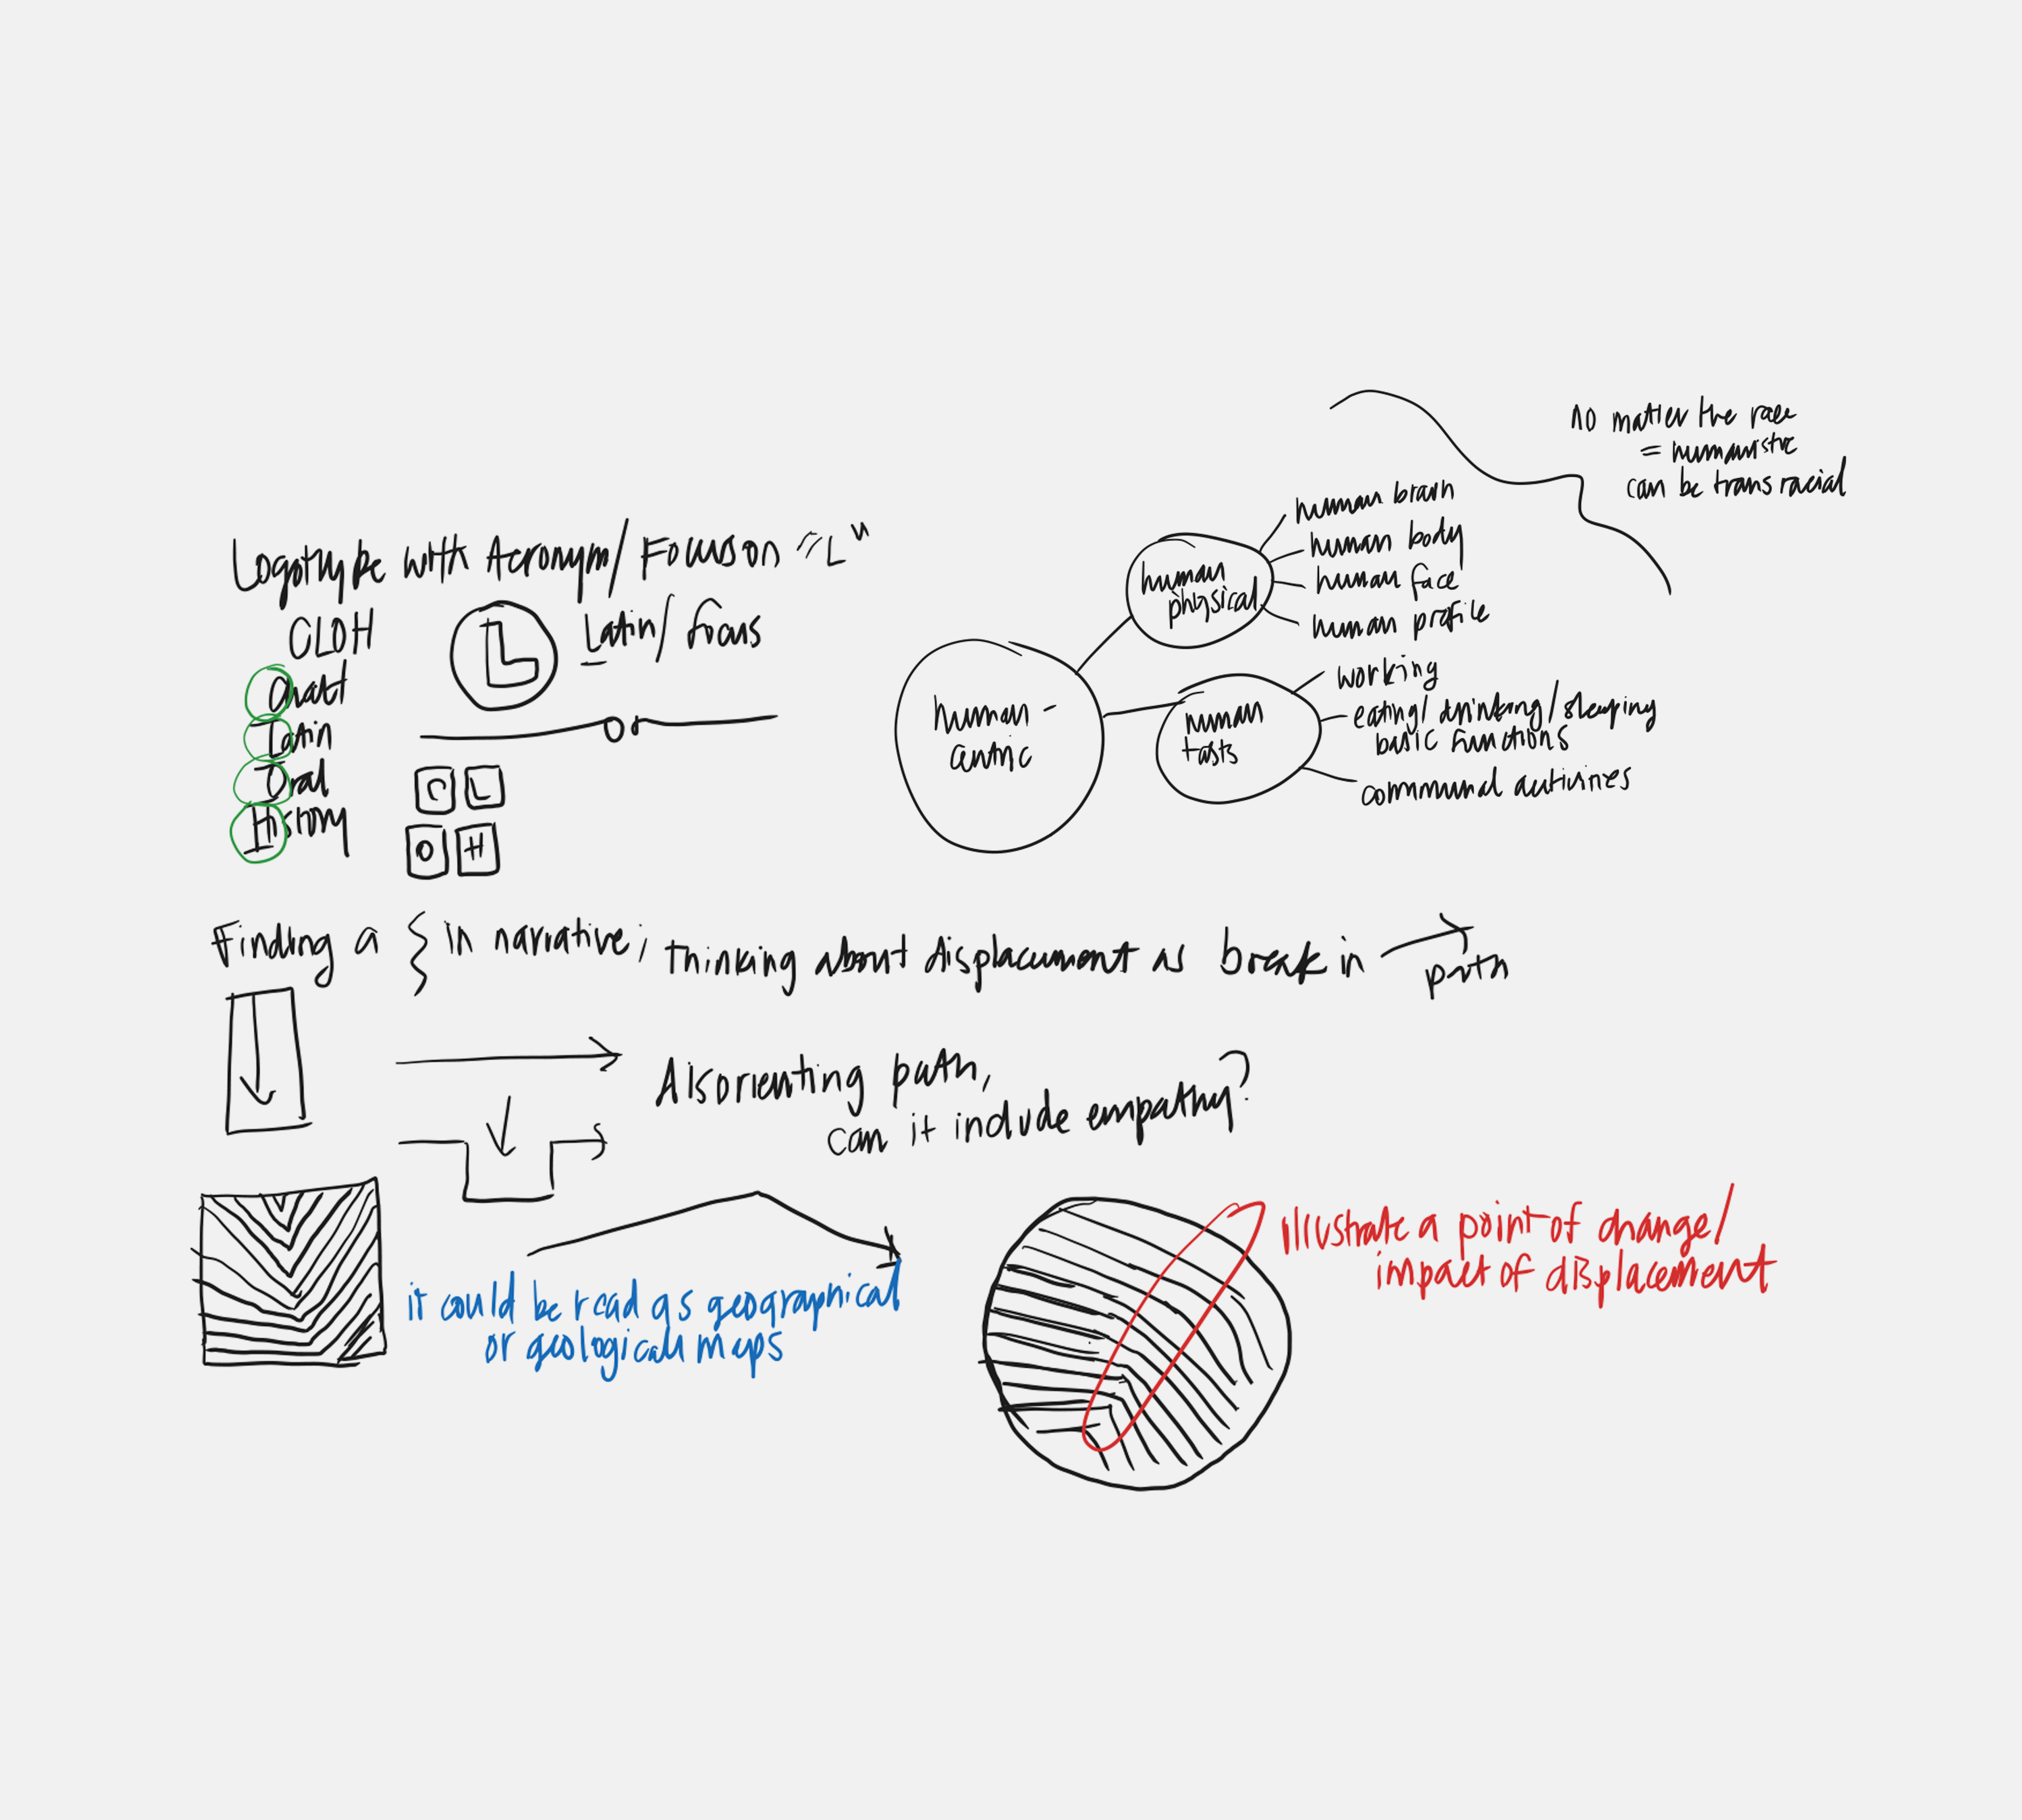 Logotype with Acronym/ Focus on "L"
CLOH
L
Latin/ focus
Latin
Oral
History
Or
C L
O H
human-
centric
human
physical
human brain
human body
human face
human profile
human
tasks
working
eating/ drinking/ sleeping
basic functions
communal activities
no matter the race
= humanistic
can be transracial
Finding a } in narrative; thinking about displacement as break in
path
disorienting path,
can it include empathy?
it could be read as geographical
or geological maps
illustrate a point of change/
impact of displacement